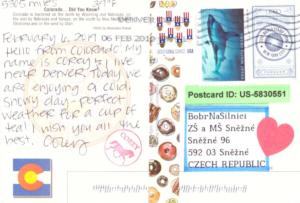 5305 miles
Colorado. . . Did You Know?
Colorado is bordered on the north by Wyoming and Nebraska, on
the east by Nebraska and Kansas, on the south by New Mexico
DENVER
06 FEB 2019
February 6, 2019
Hello from Colorado. My
name is Corey & I live
near Denver. Today we
are enjoying a cold,
snowy day - perfect
weather for a cup of
tea! I wish you all the
best.
Corey
Postcard ID: US-5830551
BobrNaSilnici
ZŠ a MŠ Sněžné
Sněžné 96
592 03 Sněžné
CZECH REPUBLIC